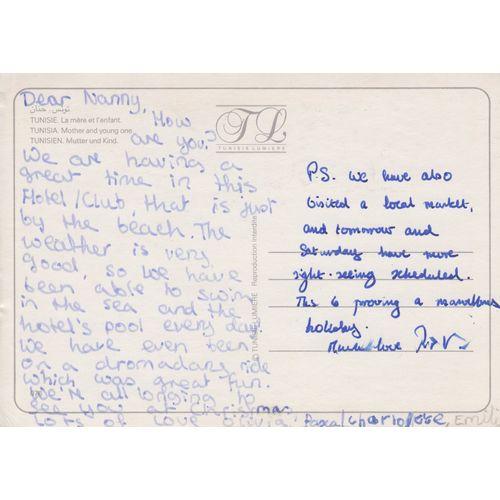 Dear Nanny,
تونس. حنان
TUNISIE. La mère et l'enfant.
TUNISIA. Mother and young one.
TUNISIEN. Mutter und Kind.
How
are you?
We are having a
great time in this
Hotel/Club, that is just
by the beach. The
weather is very
good, so we have
been able to swim
in the sea and the
hotel's pool every day.
We have even been
on a dromadary ride
which was great fun.
We're all longing to
see you at Christmas
Lots of love Olivia, Charlotte, Emili
TL
TUNISIE LUMIERE
TUNISIE LUMIERE Reproduction Interdite
P.S. We have also
visited a local market,
and tomorrow and
Saturday have more
sight-seeing scheduled.
This is proving a marvellous
holiday.
Much love